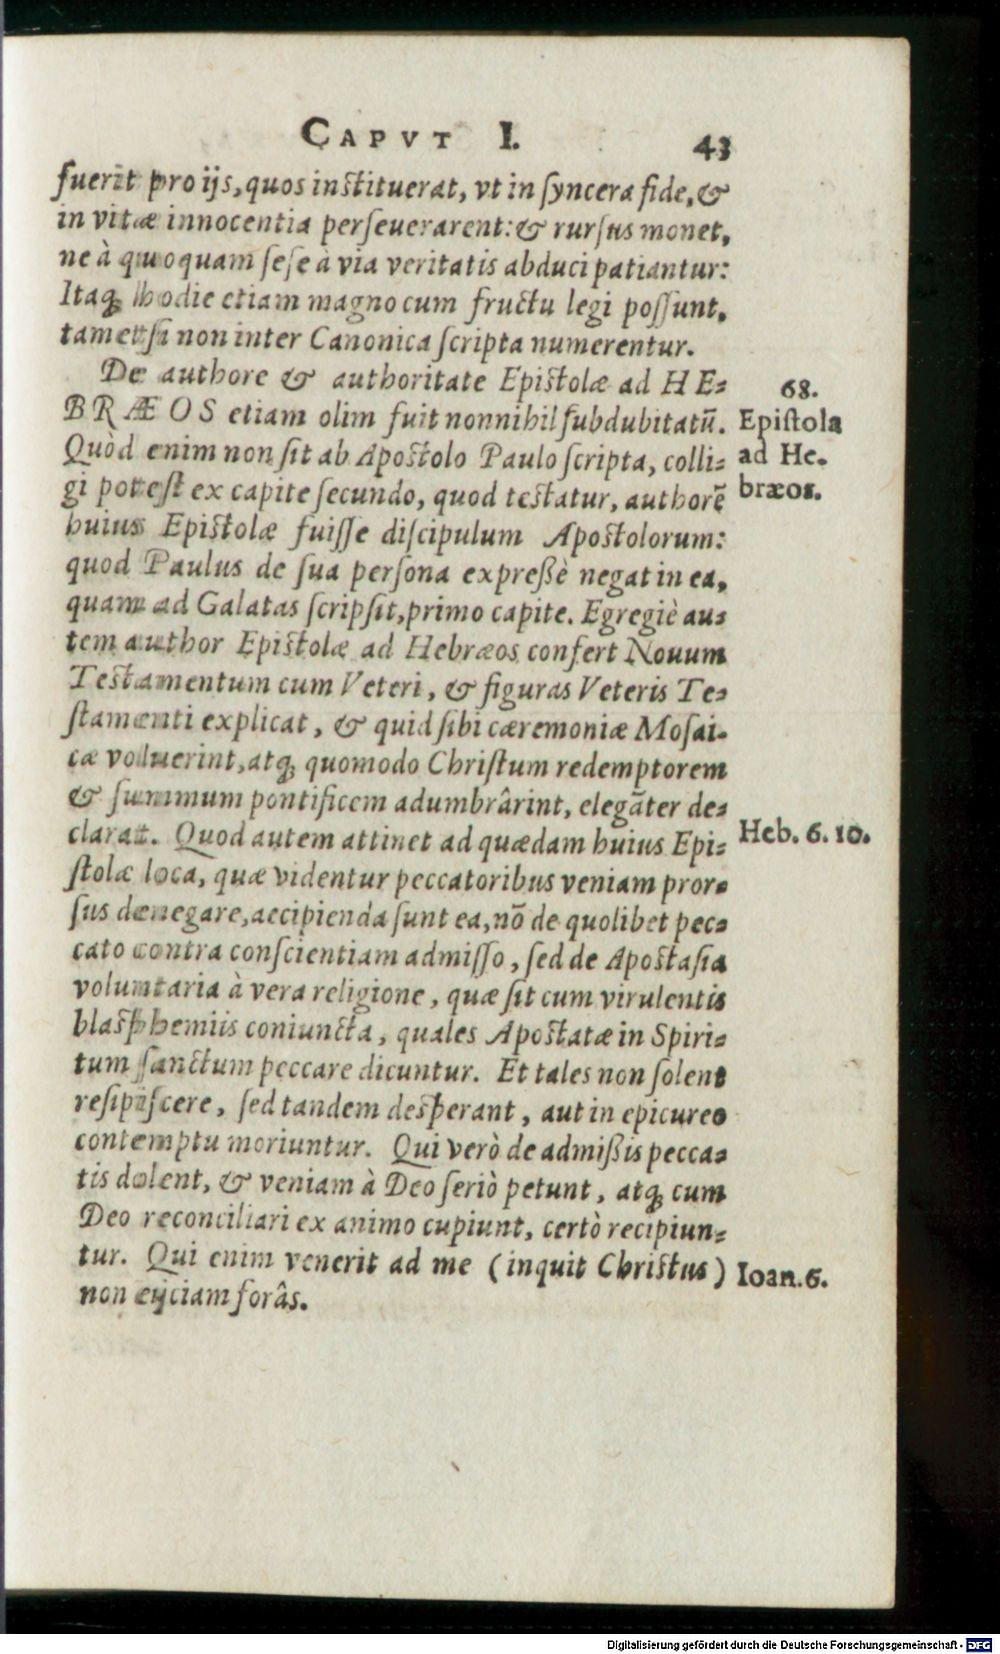 CAPVT I. 43
fuerit pro ijs, quos instituerat, vt in syncera fide, &
in vitæ innocentia perseuerarent: & rursus monet,
ne à quoquam sese à via veritatis abduci patiantur:
Itaq; hodie etiam magno cum fructu legi possunt,
tametsi non inter Canonica scripta numerentur.
De authore & authoritate Epistolæ ad HE-
BRÆOS etiam olim fuit nonnihil subdubitatũ.
Quòd enim non sit ab Apostolo Paulo scripta, colli-
gi potest ex capite secundo, quod testatur, authorẽ
huius Epistolæ fuisse discipulum Apostolorum:
quod Paulus de sua persona expreßè negat in ea,
quam ad Galatas scripsit, primo capite. Egregiè au-
tem author Epistolæ ad Hebræos confert Nouum
Testamentum cum Veteri, & figuras Veteris Te-
stamenti explicat, & quid sibi cæremoniæ Mosai-
cæ voluerint, atq; quomodo Christum redemptorem
& summum pontificem adumbrârint, elegãter de-
clarat. Quod autem attinet ad quædam huius Epi-
stolæ loca, quæ videntur peccatoribus veniam pror-
sus denegare, accipienda sunt ea, nõ de quolibet pec-
cato contra conscientiam admisso, sed de Apostasia
voluntaria à vera religione, quæ sit cum virulentis
blasphemiis coniuncta, quales Apostatæ in Spiri-
tum sanctum peccare dicuntur. Et tales non solent
resipiscere, sed tandem desperant, aut in epicureo
contemptu moriuntur. Qui verò de admißis pecca-
tis dolent, & veniam à Deo seriò petunt, atq; cum
Deo reconciliari ex animo cupiunt, certò recipiun-
tur. Qui enim venerit ad me (inquit Christus)
non eijciam forâs.
68.
Epistola
ad He-
bræos.
Heb. 6. 10.
Ioan. 6.
Digitalisierung gefördert durch die Deutsche Forschungsgemeinschaft - DFG